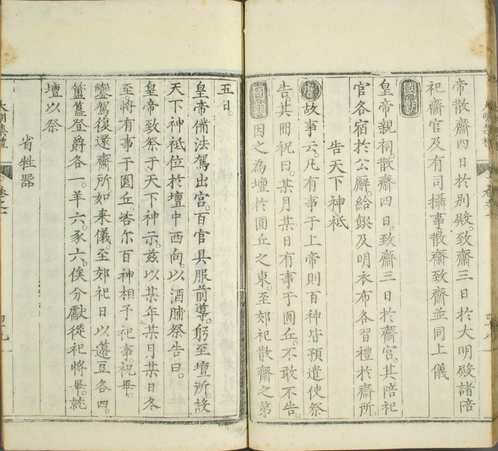 帝散齋四日於別殿。致齋三日於大明殿。諸陪
祀齋官及有司攝事。散齋致齋並同上儀
皇帝親祠散齋四日。致齋三日於齋宮。其陪祀
官各宿於公廨。給餼及明衣布各習禮於齋所
告天下神祇
故事云。凡有事于上帝則百神皆預遣使祭
告其冊祝曰。某月某日有事于圜丘。不敢不告
因之。為壇於圜丘之東。至郊祀散齋之第
五日。
皇帝備法駕出宮。百官具服前導。躬至壇所。設
天下神祇位於壇中西向。以酒脯祭告曰。
皇帝致祭于天下神示。茲以某年某月某日冬
至將有事于圜丘。咨爾百神相予祀事。祝畢。
鑾駕復還齋所。如来儀。至郊祀日。以籩豆各四
簠簋登爵各一。羊六。豕六。俟分獻從祀將畢。就
壇以祭
省牲器
大明集禮
卷之一